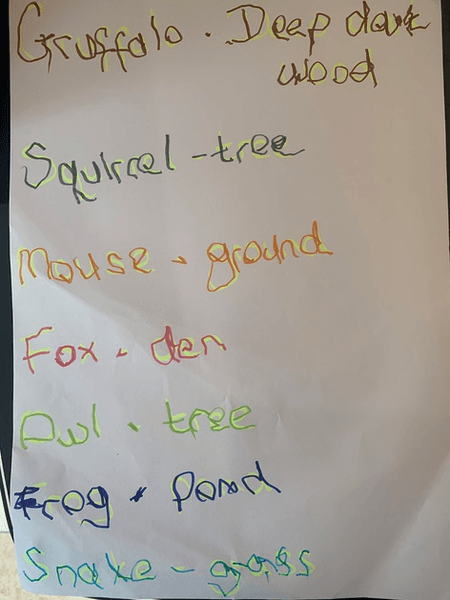 Gruffalo . Deep dark
wood
Squirrel - tree
Mouse . ground
Fox . den
Owl . tree
Frog . Pond
Snake - grass